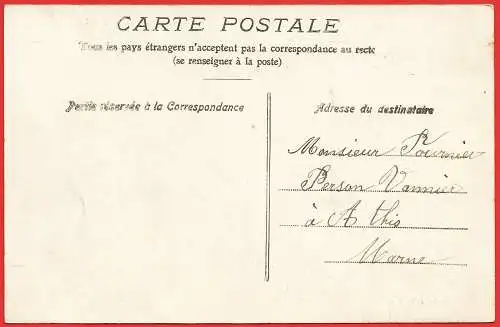 CARTE POSTALE
Tous les pays étrangers n'acceptent pas la correspondance au recto
(se renseigner à la poste)
Partie réservée à la Correspondance
Adresse du destinataire
Monsieur Fournier
Person Vannier
à Athis
Marne